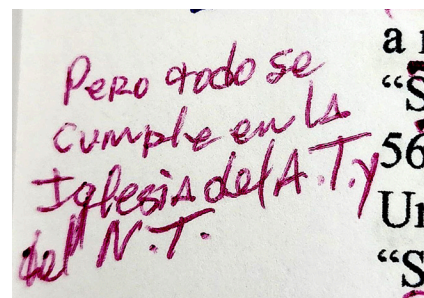 Pero todo se
cumple en la
Iglesia del A.T. y
del N.T.
a
“S
56
Un
“S